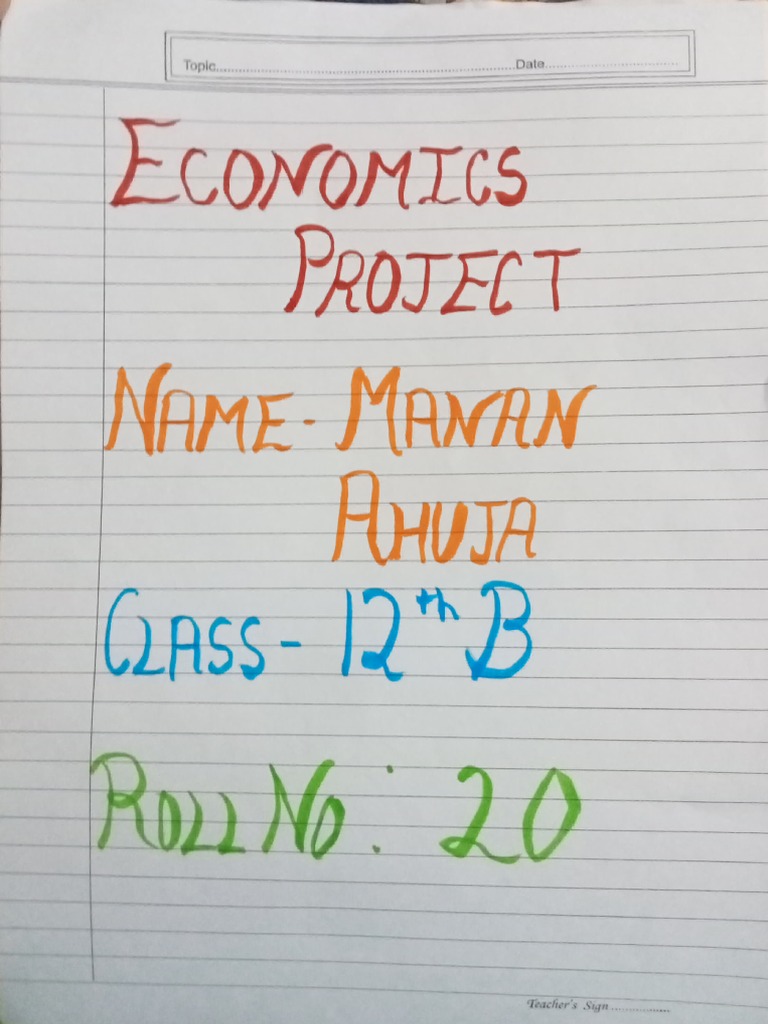 Topic.......................................................................Date................................
ECONOMICS
PROJECT
NAME- MANAN
AHUJA
CLASS- 12th B
ROLL NO: 20
Teacher's Sign................